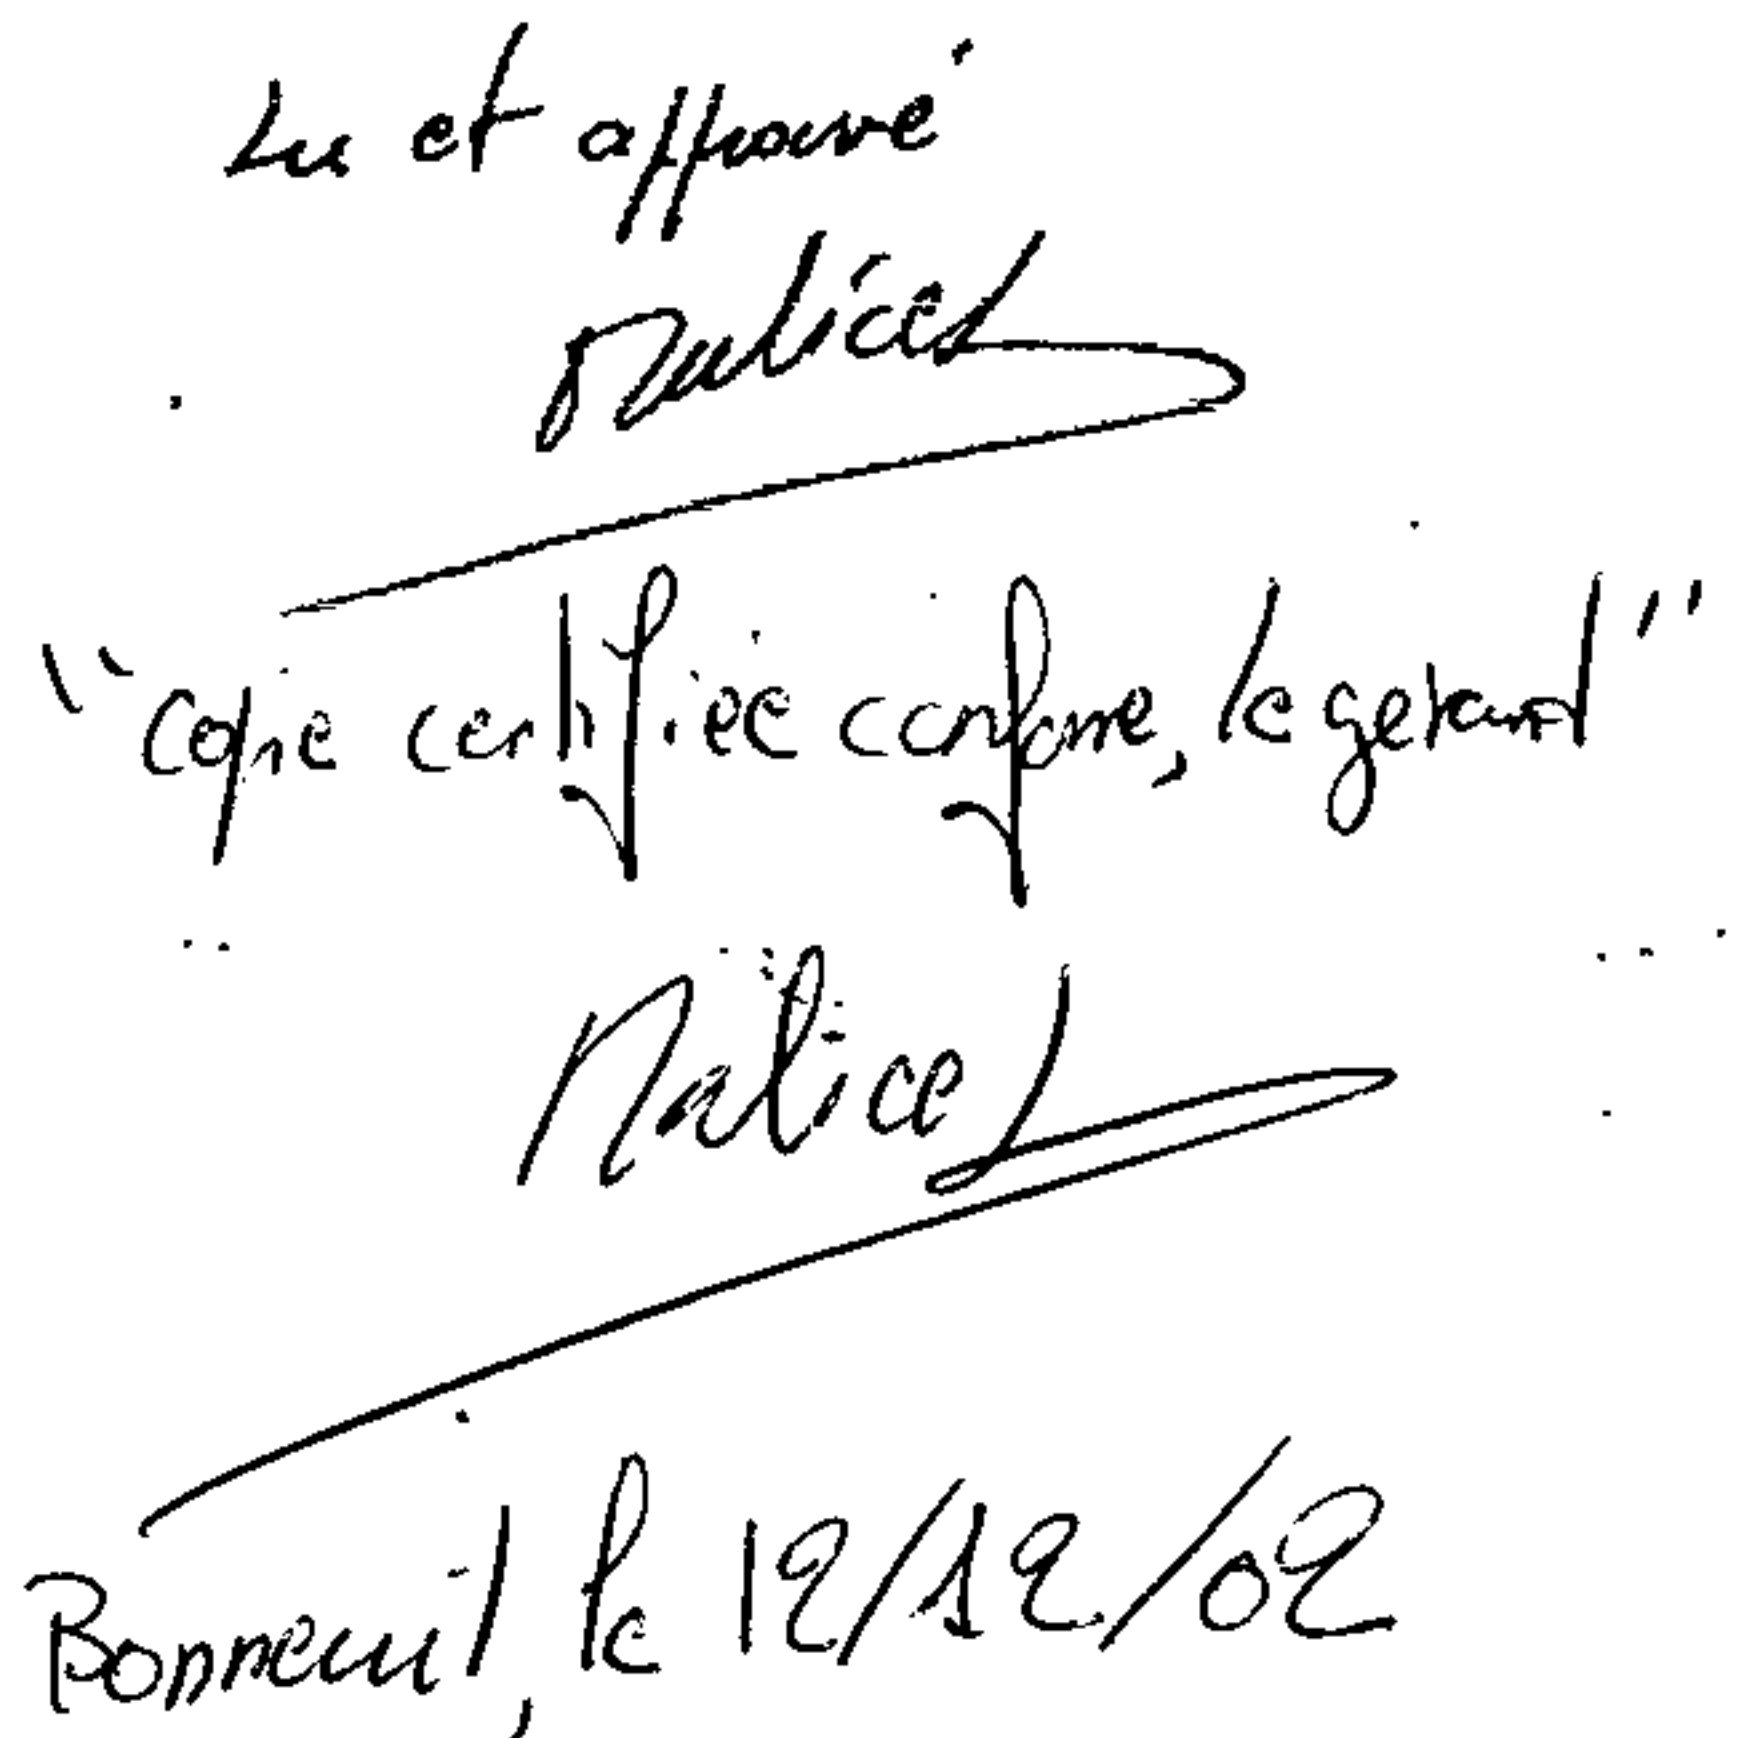 Lu et approuvé
Malicet
"Copie certifiée conforme, le gérant"
Malicet
Bonneuil, le 12/12/02